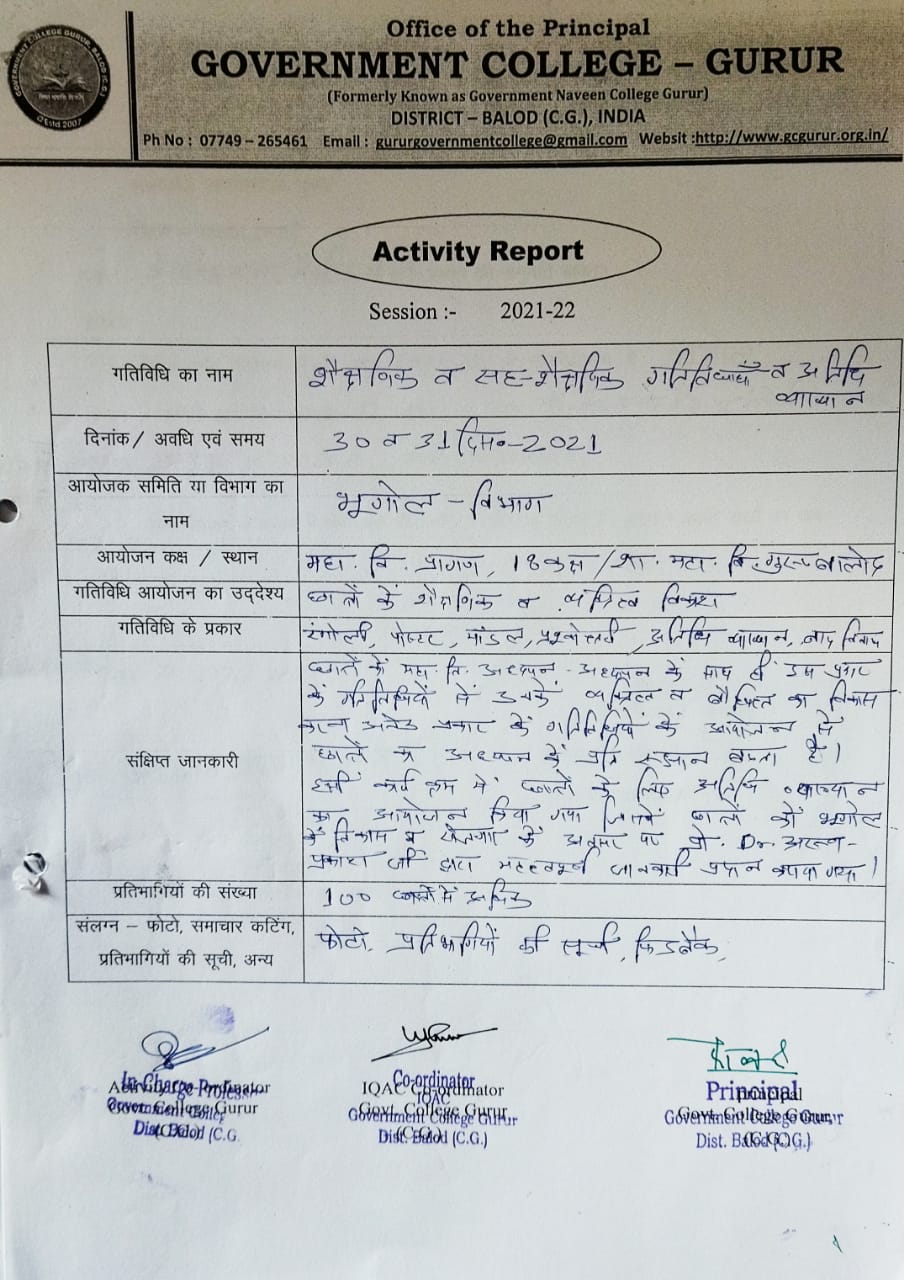 GOVERNMENT COLLEGE GURUR, BALOD (C.G.)
Estd 2007
Office of the Principal
GOVERNMENT COLLEGE – GURUR
(Formerly Known as Government Naveen College Gurur)
DISTRICT – BALOD (C.G.), INDIA
Ph No : 07749 – 265461 Email : gururgovernmentcollege@gmail.com Websit :http://www.gcgurur.org.in/
Activity Report
Session :- 2021-22
गतिविधि का नाम
शैक्षणिक व सह-शैक्षणिक गतिविधियाँ व अतिथि
व्याख्यान
दिनांक/ अवधि एवं समय
30 व 31 दिस०-2021
आयोजक समिति या विभाग का
नाम
भूगोल - विभाग
आयोजन कक्ष / स्थान
महा. वि. प्रांगण, 18 कक्ष / शा. महा. वि. गुरूर बालोद
गतिविधि आयोजन का उद्देश्य
छात्रों के शैक्षणिक व व्यक्तित्व विकास
गतिविधि के प्रकार
रंगोली, पोस्टर, मॉडल, प्रश्नोत्तरी, अतिथि व्याख्यान, वाद विवाद
संक्षिप्त जानकारी
छात्रों के महा. वि. अध्ययन-अध्यापन के साथ ही इस प्रकार
के गतिविधियों से उनके व्यक्तित्व व का विकास
करना अनेक प्रकार के गतिविधियों के आयोजन से
छात्रों का अध्ययन के प्रति रूझान बढ़ता है।
इसी कार्यक्रम में छात्रों के लिए अतिथि व्याख्यान
का आयोजन किया गया जिसमें छात्रों को भूगोल
के विकास व रोजगार के अवसर पर प्रो. Dr.
प्रकाश जी द्वारा महत्वपूर्ण जानकारी प्रदान कराया गया।
प्रतिभागियों की संख्या
100 छात्रों से अधिक
संलग्न – फोटो, समाचार कटिंग,
प्रतिभागियों की सूची, अन्य
फोटो, प्रतिभागियों की सूची, फिडबैक,
In-Charge Professor
Government College
Dist. Balod (C.G.
Co-ordinator
IQAC
IQAC Co-ordinator
Govt. College Gurur
Government College Gurur
Dist. Balod (C.G.)
Principal
Govt. College Gurur
Government College Gurur
Dist. Balod (C.G.)